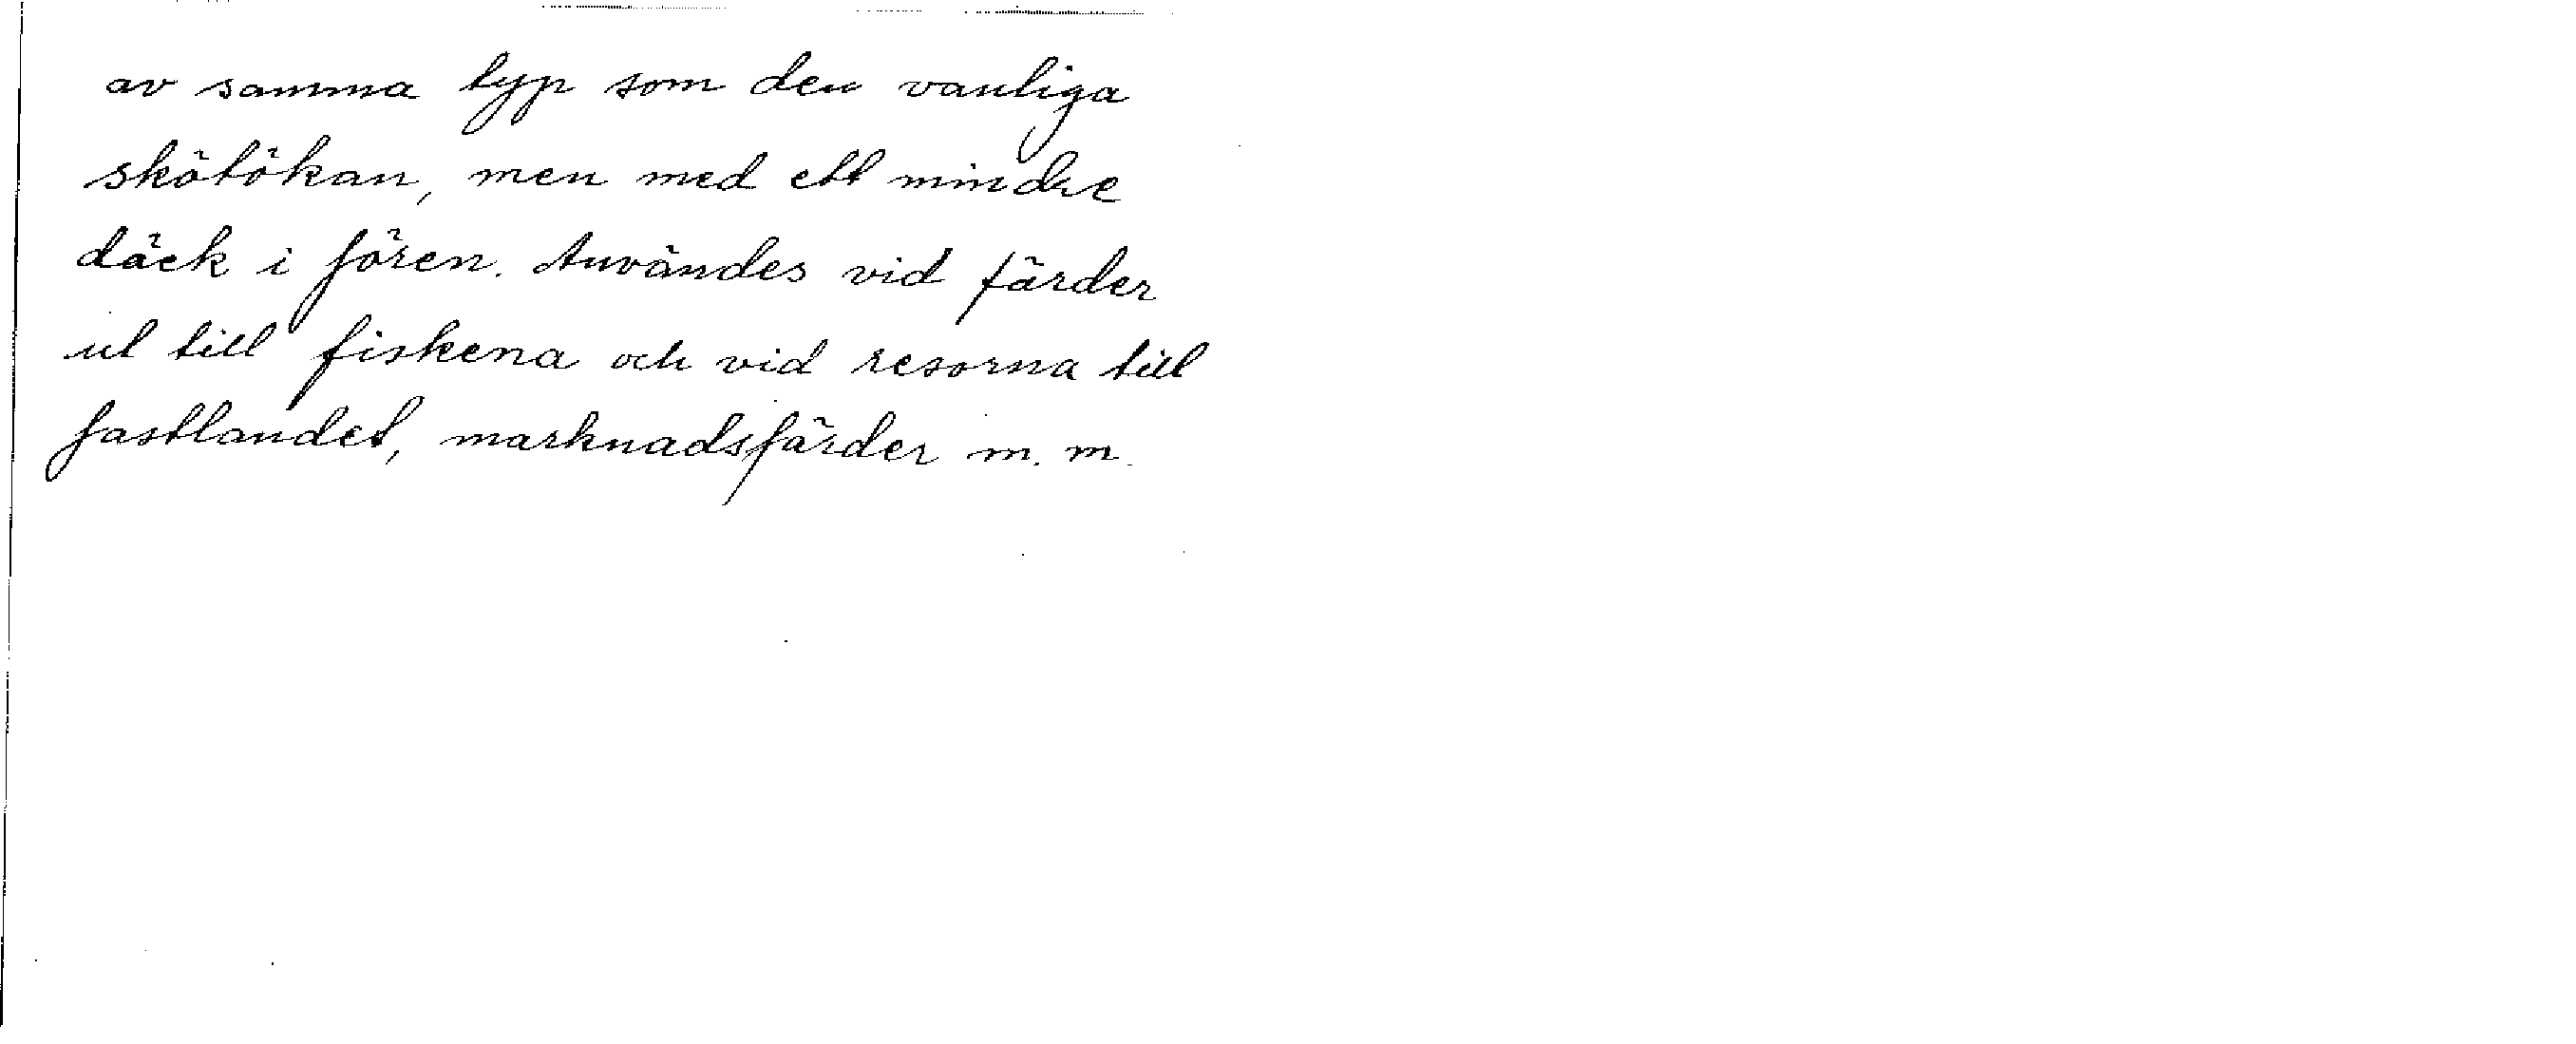 av samma typ som den vanliga
skötökan, men med ett mindre
däck i fören. Användes vid färder
ut till fiskena och vid resorna till
fastlandet, marknadsfärder m. m.